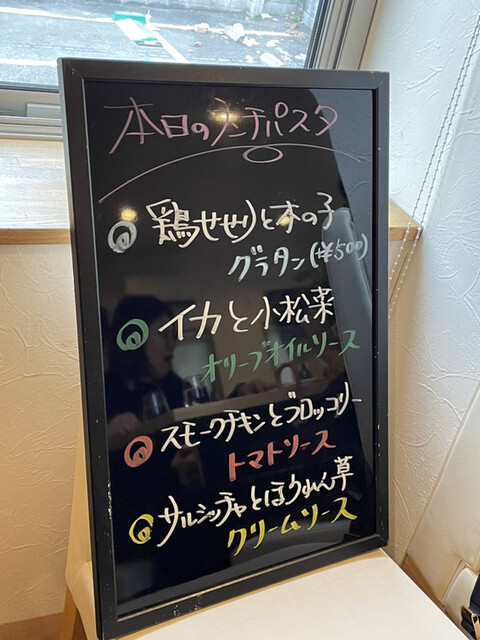 本日のランチパスタ
鶏せせりと木の子
グラタン(+¥500)
イカと小松菜
オリーブオイルソース
スモークチキンとブロッコリー
トマトソース
サルシッチャとほうれん草
クリームソース